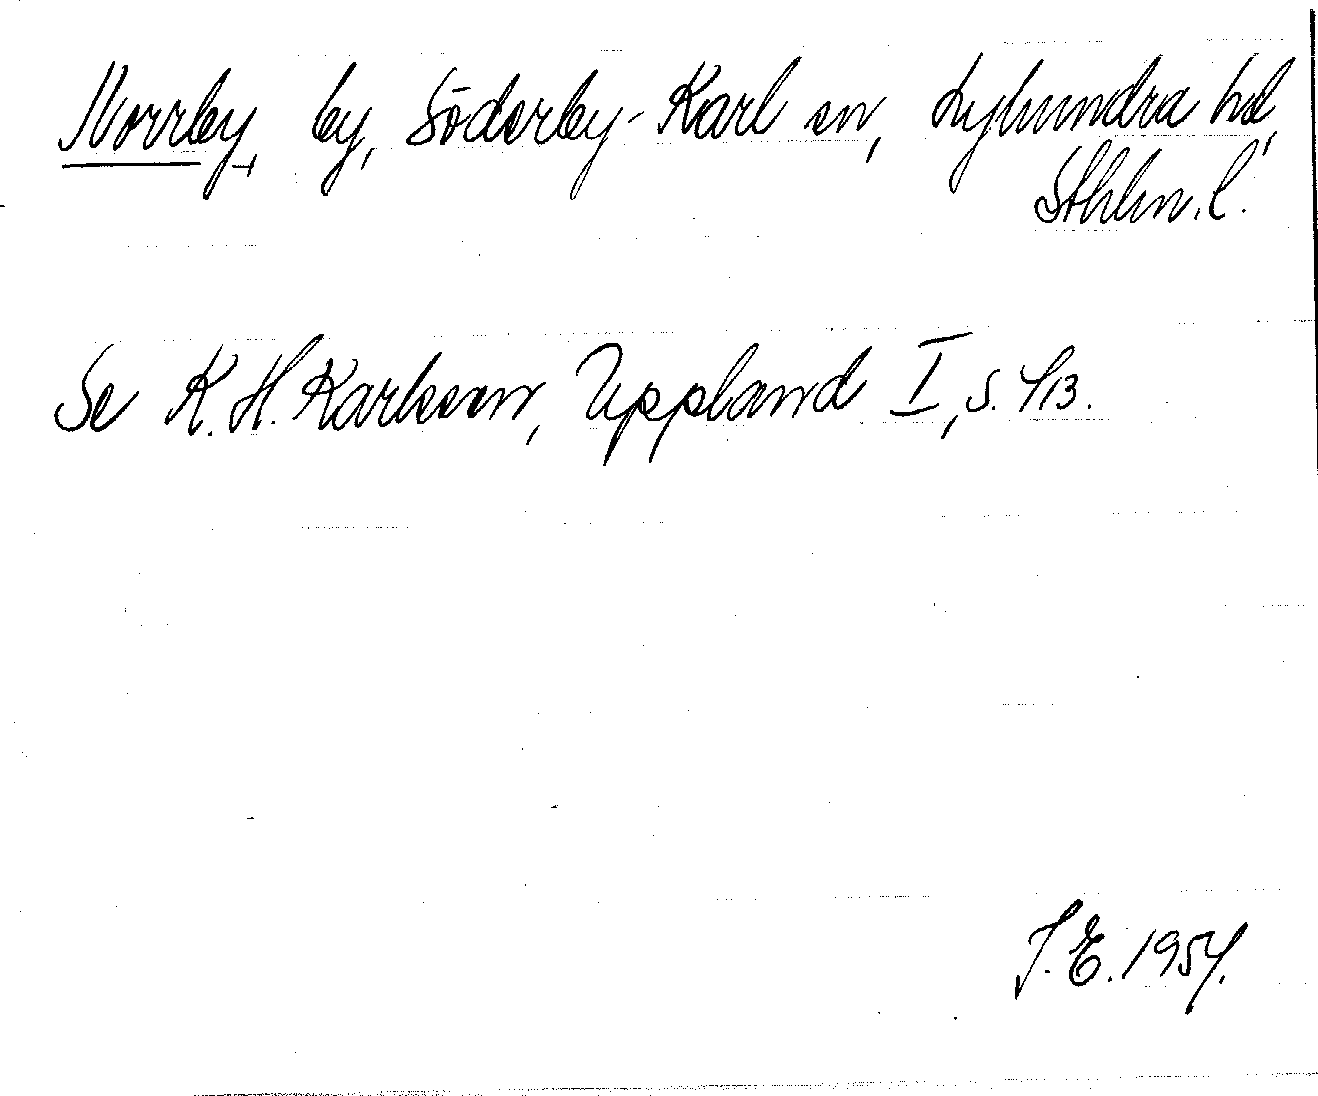 Norrby, by, Söderby-Karl sn, Lyhundra hd,
Sthlm. l.
Se K. H. Karlsson, Uppland I, s. 413.
J. E. 1954.